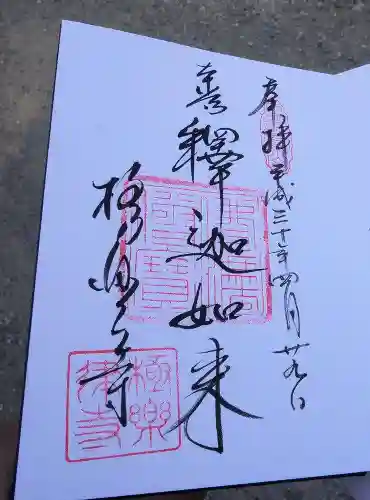 奉拝
平成三十年四月廿九日
善
釋迦如来
極楽律寺
極樂
律寺